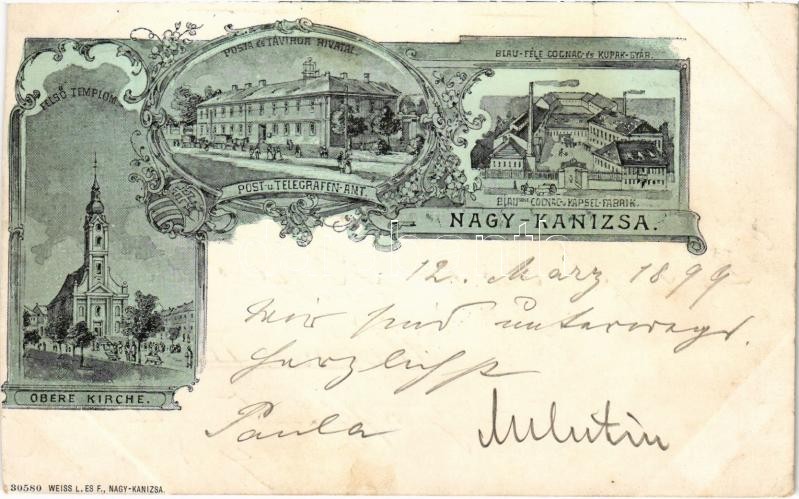 POSTA és TÁVIRDA HIVATAL.
BLAU-FÉLE COGNAC- és KUPAK-GYÁR.
FELSŐ TEMPLOM
POST u. TELEGRAFEN-AMT.
BLAU'sche COGNAC- u. KAPSEL-FABRIK.
NAGY-KANIZSA.
12. März 1899
Wir sind unterwegs.
Herzlichst
Paula
OBERE KIRCHE.
30580 WEISS L. ES F., NAGY-KANIZSA.